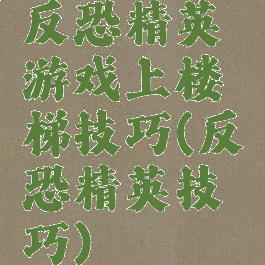 反恐精英
游戏上楼
梯技巧(反
恐精英技
巧)